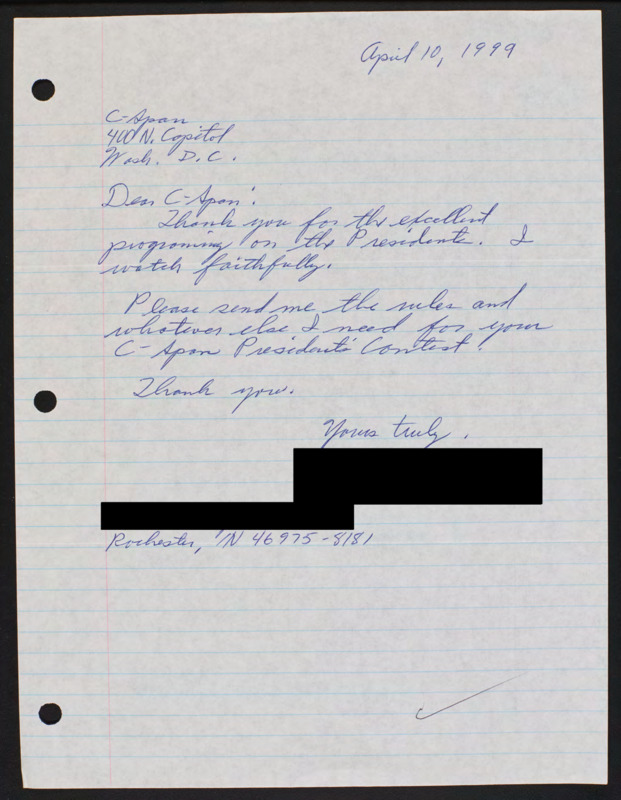 April 10, 1999
C-Span
400 N. Capitol
Wash. D.C.
Dear C-Span:
Thank you for the excellent
programing on the Presidents. I
watch faithfully.
Please send me the rules and
whatever else I need for your
C-Span President's Contest.
Thank you.
Yours truly,
Rochester, IN 46975-8181